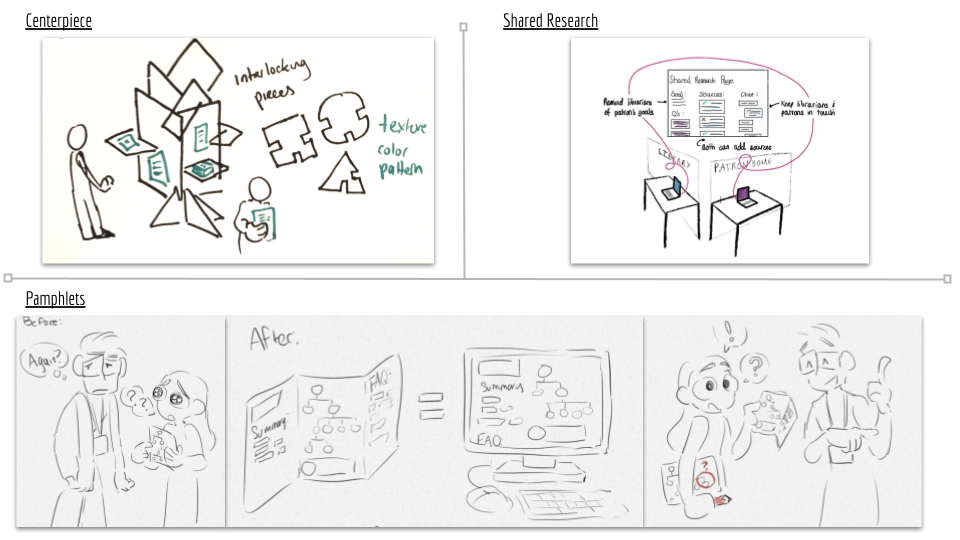 Centerpiece
interlocking
pieces
texture
color
pattern
Shared Research
Shared Research Page
Goal:
Sources:
Chat:
Q's:
Remind librarians
of patron's goals
Keep librarians &
patrons in touch
Both can add sources
LIBRARY
PATRON HOME
Pamphlets
Before:
Again?
? ?
After:
Summary:
FAQ:
=
Summary
FAQ:
!
?
?